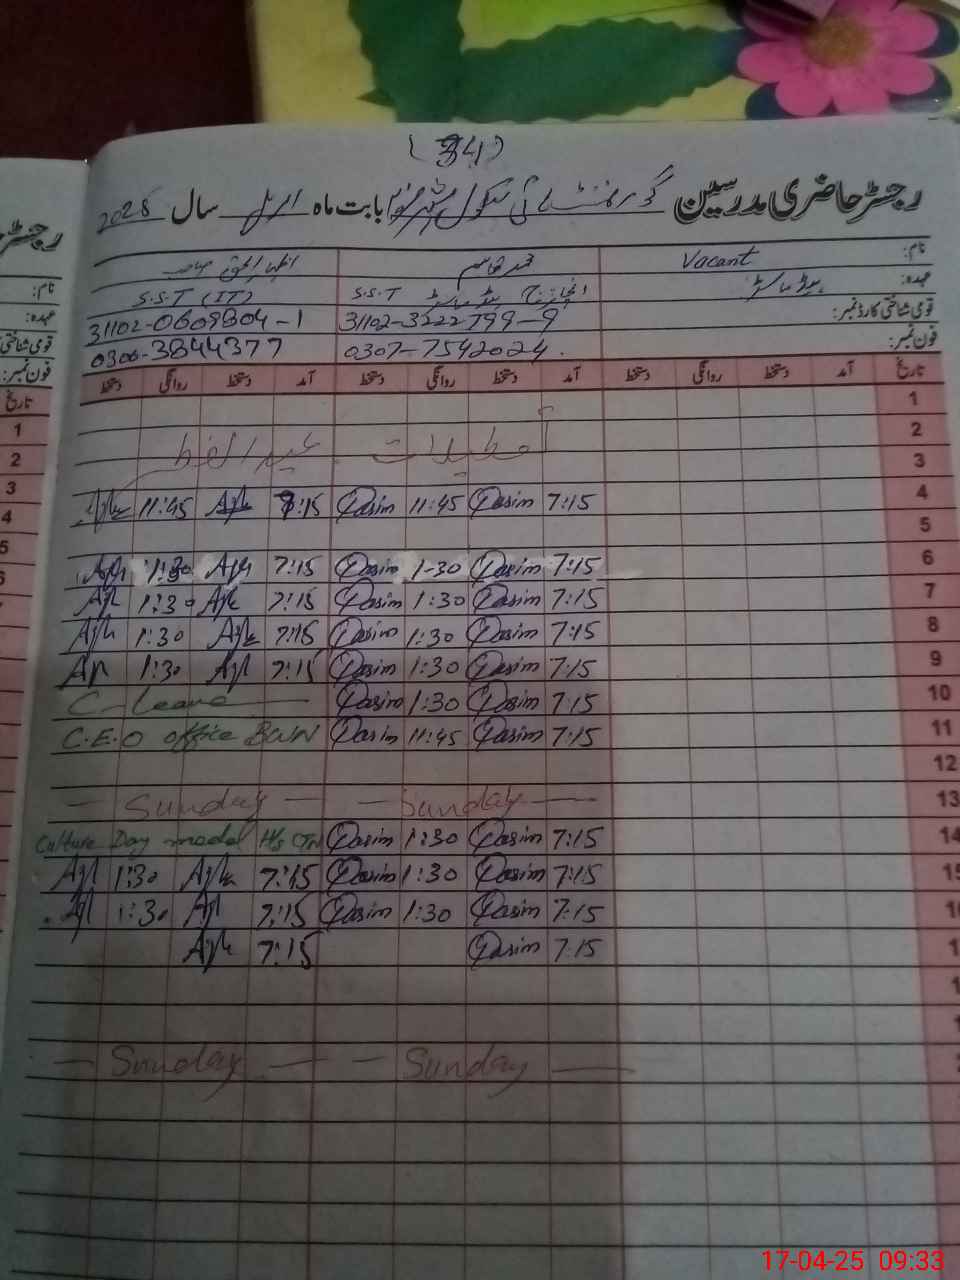 (34)
رجسٹر حاضری مدرسین گورنمنٹ ہائی سکول بابت ماہ اپریل سال 2025
نام: Vacant محمد قاسم اظہار الحق صاحب
عہدہ: ہیڈ ماسٹر انچارج ہیڈ ماسٹر S.S.T S.S.T (IT)
قومی شناختی کارڈ نمبر: 31102-3222799-9 31102-0609804-1
فون نمبر: 0307-7542024. 0306-3844377
تاریخ آمد دستخط روانگی دستخط آمد دستخط روانگی دستخط آمد دستخط روانگی دستخط
1
2
تعطیلات عید الفطر
3
4 7:15 Qasim 11:45 Qasim 7:15 Ajh 11:45 Ajh
5
6 7:15 Qasim 1-30 Qasim 7:15 Ajh 1:30 Ajh
7 7:15 Qasim 1:30 Qasim 7:15 Ajh 1:30 Ajh
8 7:15 Qasim 1:30 Qasim 7:15 Ajh 1:30 Ajh
9 7:15 Qasim 1:30 Qasim 7:15 Ajh 1:30 Ajh
10 7:15 Qasim 1:30 Qasim C-Leave
11 7:15 Qasim 11:45 Qasim C.E.O office BWN
12
13 Sunday Sunday
14 7:15 Qasim 1:30 Qasim Culture Day model H/S
15 7:15 Qasim 1:30 Qasim 7:15 Ajh 1:30 Ajh
7:15 Qasim 1:30 Qasim 7:15 Ajh 1:30 Ajh
7:15 Qasim 7:15 Ajh
Sunday Sunday
رجسٹر
نام:
عہدہ:
قومی شناختی
فون نمبر:
تاریخ
1
2
3
4
5
17-04-25 09:33